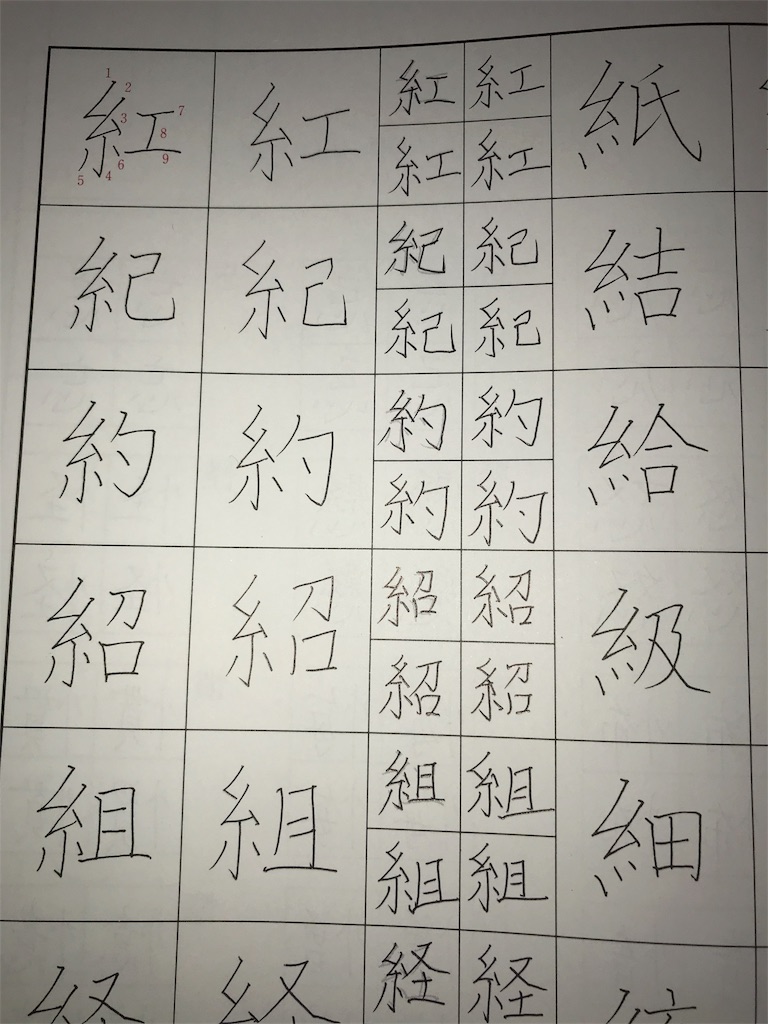 1 2 3 4 5 6 7 8 9
紅 紅 紅 紅 紙
紅 紅
紀 紀 紀 紀 結
紀 紀
約 約 約 約 給
約 約
紹 紹 紹 紹 級
紹 紹
組 組 組 組 細
組 組
経 経 経 経